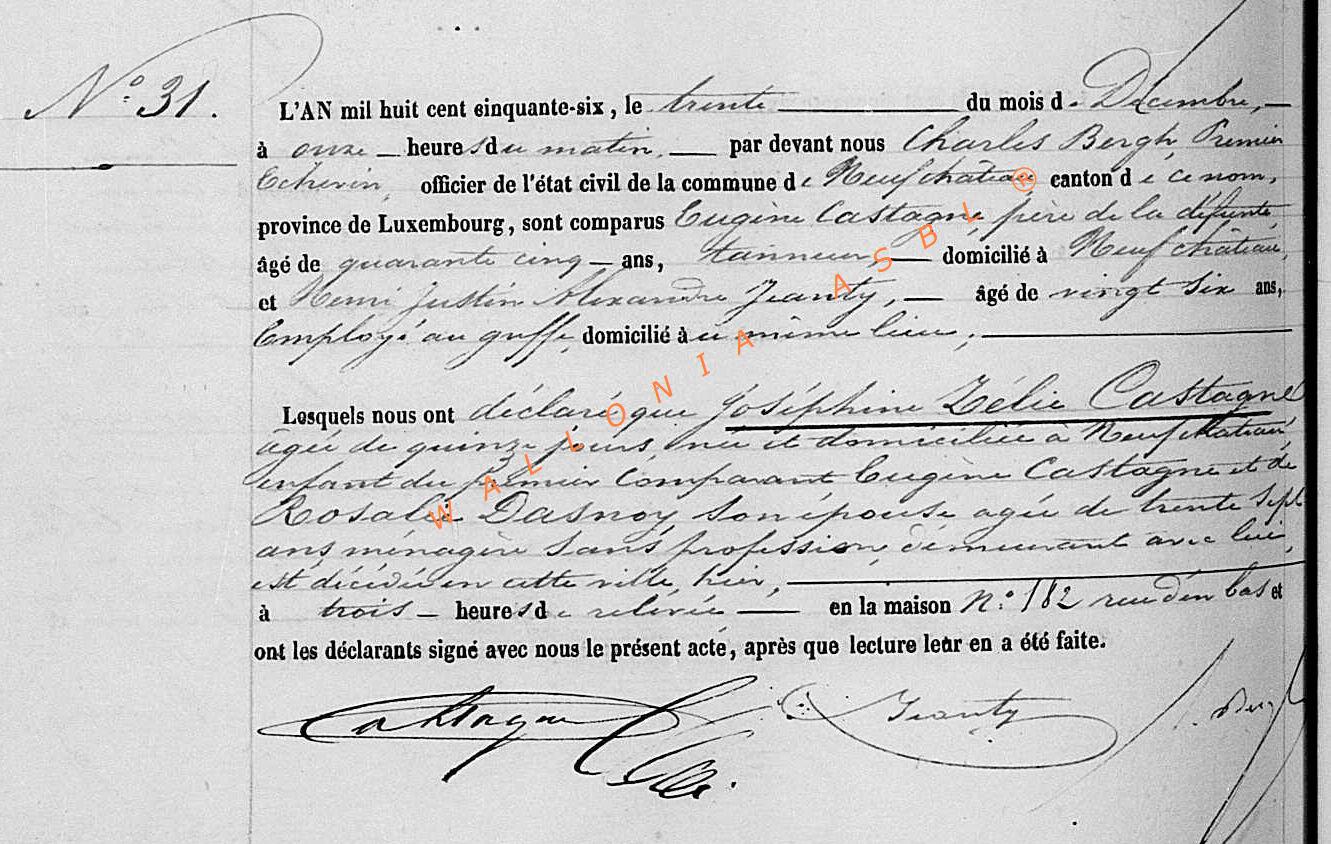 N° 31.
L'AN mil huit cent cinquante-six, le trente du mois de Décembre,
à onze heures du matin, par devant nous Charles Bergh, Premier
Echevin, officier de l'état civil de la commune de Neufchâteau canton de ce nom,
province de Luxembourg, sont comparus Eugène Castagne, père de la défunte
âgé de quarante cinq ans, tanneur, domicilié à Neufchâteau,
et Henri Justin Alexandre Jeanty, âgé de vingt six ans,
Employé au greffe, domicilié à u même lieu,
Lesquels nous ont déclaré que Joséphine Zélie Castagne
agée de quinze jours, née et domiciliée à Neufchateau,
enfant du premier comparant Eugène Castagne et de
Rosalie Dasnoy, son épouse agée de trente sept
ans ménagère sans profession, demeurant avec lui,
est décédée en cette ville, hier,
à trois heures de relevée en la maison N° 182 rue d'en bas et
ont les déclarants signé avec nous le présent acte, après que lecture leur en a été faite.
Castagne Jeanty Bergh
WALLONIA ASBL ®